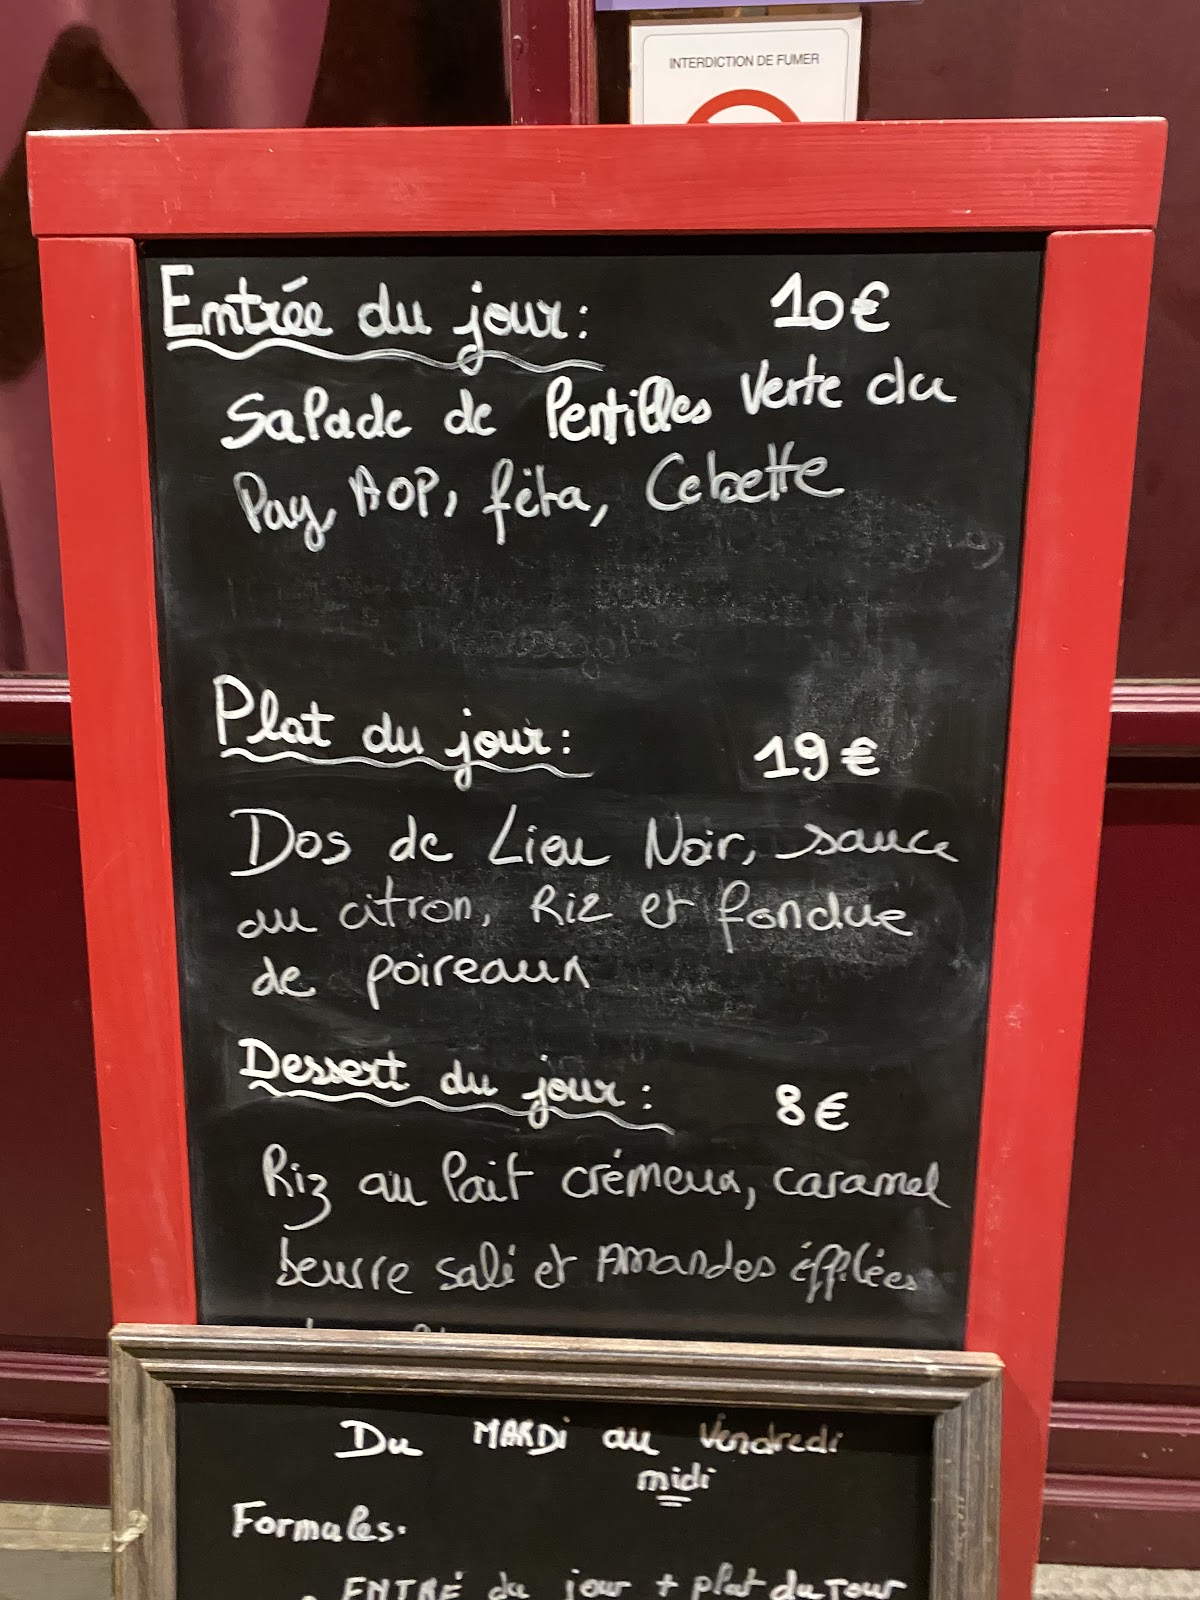 INTERDICTION DE FUMER
Entrée du jour: 10€
Salade de lentilles verte du
Puy, AOP, fêta, Cebette
Plat du jour: 19€
Dos de Lieu Noir, sauce
au citron, Riz et fondue
de poireaux
Dessert du jour: 8€
Riz au lait crémeux, caramel
beurre salé et Amandes éffilées
Du MARDi au Vendredi
midi
Formules.
ENTRÉ du jour + plat du Jour